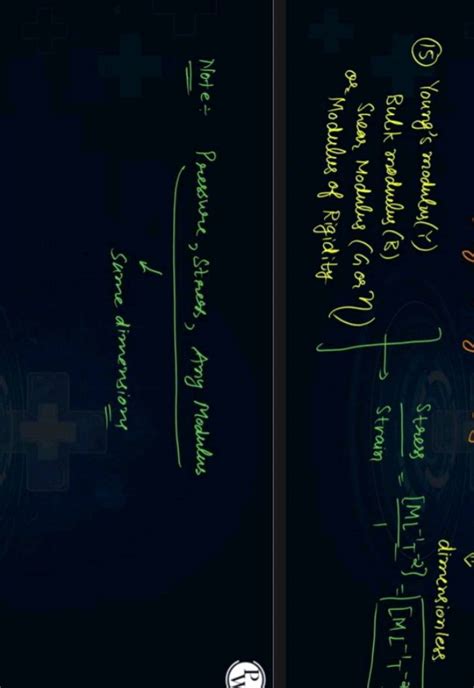 ⑮ Young's modulus (Y)
Bulk modulus (B)
Shear Modulus (G or η)
or Modulus of Rigidity
→ Stress / Strain = [ML⁻¹T⁻²] / 1 = [ML⁻¹T⁻²
dimensionless
Note:- Pressure, Stress, Any Modulus
↓
Same dimensions
PW